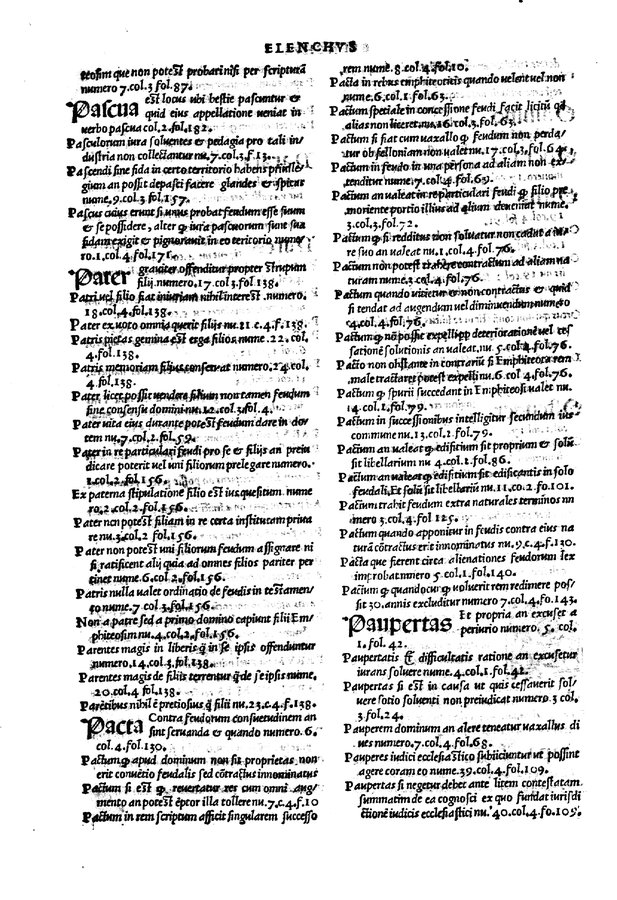 ELENCHVS
teosim que non potest probari nisi per scripturã
numero 7.col.3 fol.87.
Pascua est locus vbi bestie pascuntur &
quid eius appellatione veniat in
verbo pascua col.2.fol.182.
Pasculorum iura soluentes & pedagia pro tali in/
dustria non collectantur nu.7.col.3.f.13.
Pascendi sine fida in certo territorio habens priuile/
gium an possit depasci facere glandes & spicas
nume.9.col.3 fol.157.
Pascus cuius erunt si vnus probat feudum esse suum
& se possidere, alter ꝙ iura pascuorum sunt sua
fidam exigit & pignorauit in eo territorio nume/
ro.1.col.4 fol.171.
Pater grauiter offenditur propter strupum
filij.numero.17 col.3 fol.138.
Patri vel filio fiat iniuriam nihil interest .numero.
18.col.4.fol.138.
Pater ex voto omnia querit filijs nu.21 c.4.f.138.
Patris pietas gemina est erga filios nume .22 col.
4.fol.138.
Patris memoriam filius conseruat numero.24.col,
4 fol.138.
Pater licet possit vendere filium non tamen feudum
sine consensu domini nu.12 col.3 fol.4.
Pater vita eius durante potest feudum dare in do/
tem nu.7.col.2.fol.59.
Pater in re particulari feudi pro se & filijs an preiu
dicare poterit vel vni filiorum prelegare numero.
1.col.2.fol.156.
Ex paterna stipulatione filio est ius quesitum nume
ro.2.col.2.fol.156.
Pater non potest filiam in re certa institutam priua
re nu.3.col.2 fol.156.
Pater non potest vni filiorum feudum assignare ni
si ratificent alij quia ad omnes filios pariter per
tinet nume.6.col.2.fol.156.
Patris nulla valet ordinatio de feudis in testamen/
to nume.7 col.3.fol.156.
Non a patre sed a primo domino capiunt filij Em/
phiteosim nu.4.col.2.fol.156.
Parentes magis in liberis ꝙ in se ipsis offenduntur
numero.14.col.3.fol.138.
Parentes magis de filijs terrentur ꝙ de se ipsis nume.
20.col.4 fol.138.
Parẽtibus nihil è pretiosius ꝙ filij nu.23.c.4.f.138.
Pacta Contra feudorum consuetudinem an
sint seruanda & quando numero.6.
col.4.fol.130.
Pactum ꝙ apud dominum non sit proprietas non
erit conuẽtio feudalis sed cõtractus innominatus
Pactum si est ꝙ reuertatur res cum omni aug/
mento an potest ẽptor illa tollere nu.7.c.4.f.10
Pactum in rem scriptum afficit singularem successo
rem nume.8.col.4.fol.10.
Pacta in rebus emphiteoticis quando valent vel non
nume.6.col.1.fol.63.
Pactum speciale in concessione feudi facit licitũ qđ
alias non liceret nu.16.col.3.fol.63.
Pactum si fiat cum vaxallo ꝙ feudum non perda/
tur ob felloniam non valet nu.17.col.3.fol.64.
Pactum in feudo in vna persona ad aliam non ex/
tenditur nume.7.col.4.fol.69.
Pactum an valeat in re particulari feudi ꝙ filio pre
moriente portio illius ad alium deueniat nume.
3.col.3.fol.72.
Pactum ꝙ si redditus non soluatur non cadat a iu/
re suo an valeat nu.1.col.4.fol.76.
Pactum non potest trahere contractum ad aliam na
turam nume.3.col.4.fol.76.
Pactum quando vitietur & non contractus & quid
si tendat ad augendum vel diminuendum numero
4.col.4.fol.76.
Pactum ꝙ nõ possit expelli ꝓp deteriorationẽ vel ces
sationẽ solutionis an valeat.nu.5.col.4.fol.76.
Pacto non obstante in contrariũ si Emphiteota rem
male tractaret potest expelli nu.6.col.4.fol.76.
Pactum ꝙ spurij succedant in Emphiteosi valet nu.
14.col.1.fol.79.
Pactum in successionibus intelligitur secundum ius
commune nu.13.col.1.fol.79.
Pactum an valeat ꝙ edifitium sit proprium & solũ
sit libellarium nu 4.col.1.fol.86.
Pactum an valeat ꝙ edifitium sit edificantis in solo
feudali, Et solũ sit libellariũ nu.11.co.2.fo.101.
Pactum trahit feudum extra naturales terminos nu
mero 3.col.4.fol 125.
Pactum quando apponitur in feudis contra eius na
turã cõtractus erit innominatus nu.9.c.4.f.130.
Pacta que fierent circa alienationes feudorum lex
improbat numero 5.col.1.fol.140.
Pactum ꝙ quandocunꝙ voluerit rem redimere pos/
sit 30.annis excluditur numero 7.col.4.fo.143.
Paupertas Et propria an excuset a
periurio numero. 5. col.
1.fol.42.
Paupertatis & difficultatis ratione an excusetur
iurans soluere nume.4.col.1.fol.42.
Paupertas si est in causa vt quis cessauerit sol/
uere sotio soluenti non preiudicat numero 3 col.
3.fol.24.
Pauperem dominum an alere teneatur vaxallus di
ues numero.7.col.4.fol.68.
Pauperes iudici ecclesiastico subijciuntur vt possint
agere coram eo nume.39.col.4.fol.109.
Paupertas si negetur debet ante litem contestatam
summatim de ea cognosci ex quo fundat iurisdi
ctionẽ iudicis ecclesiastici nu.40.col.4.fo.109.